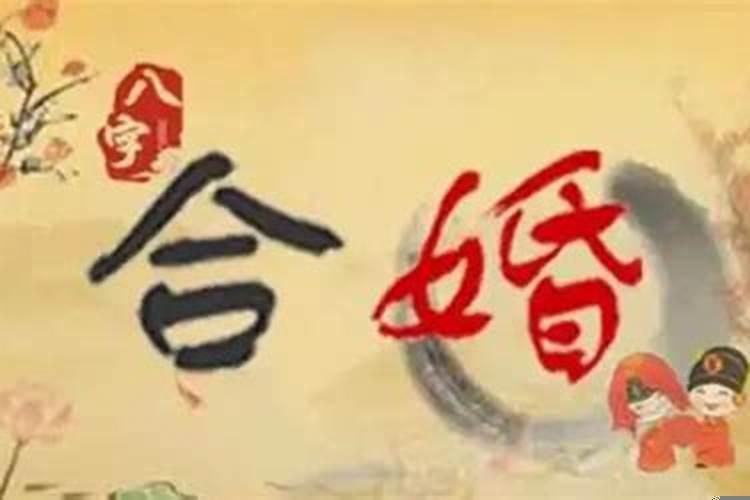 八字
合婚